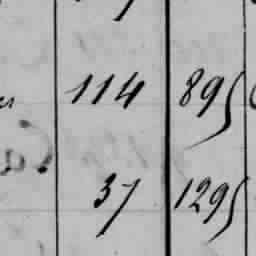 114 895
37 1295